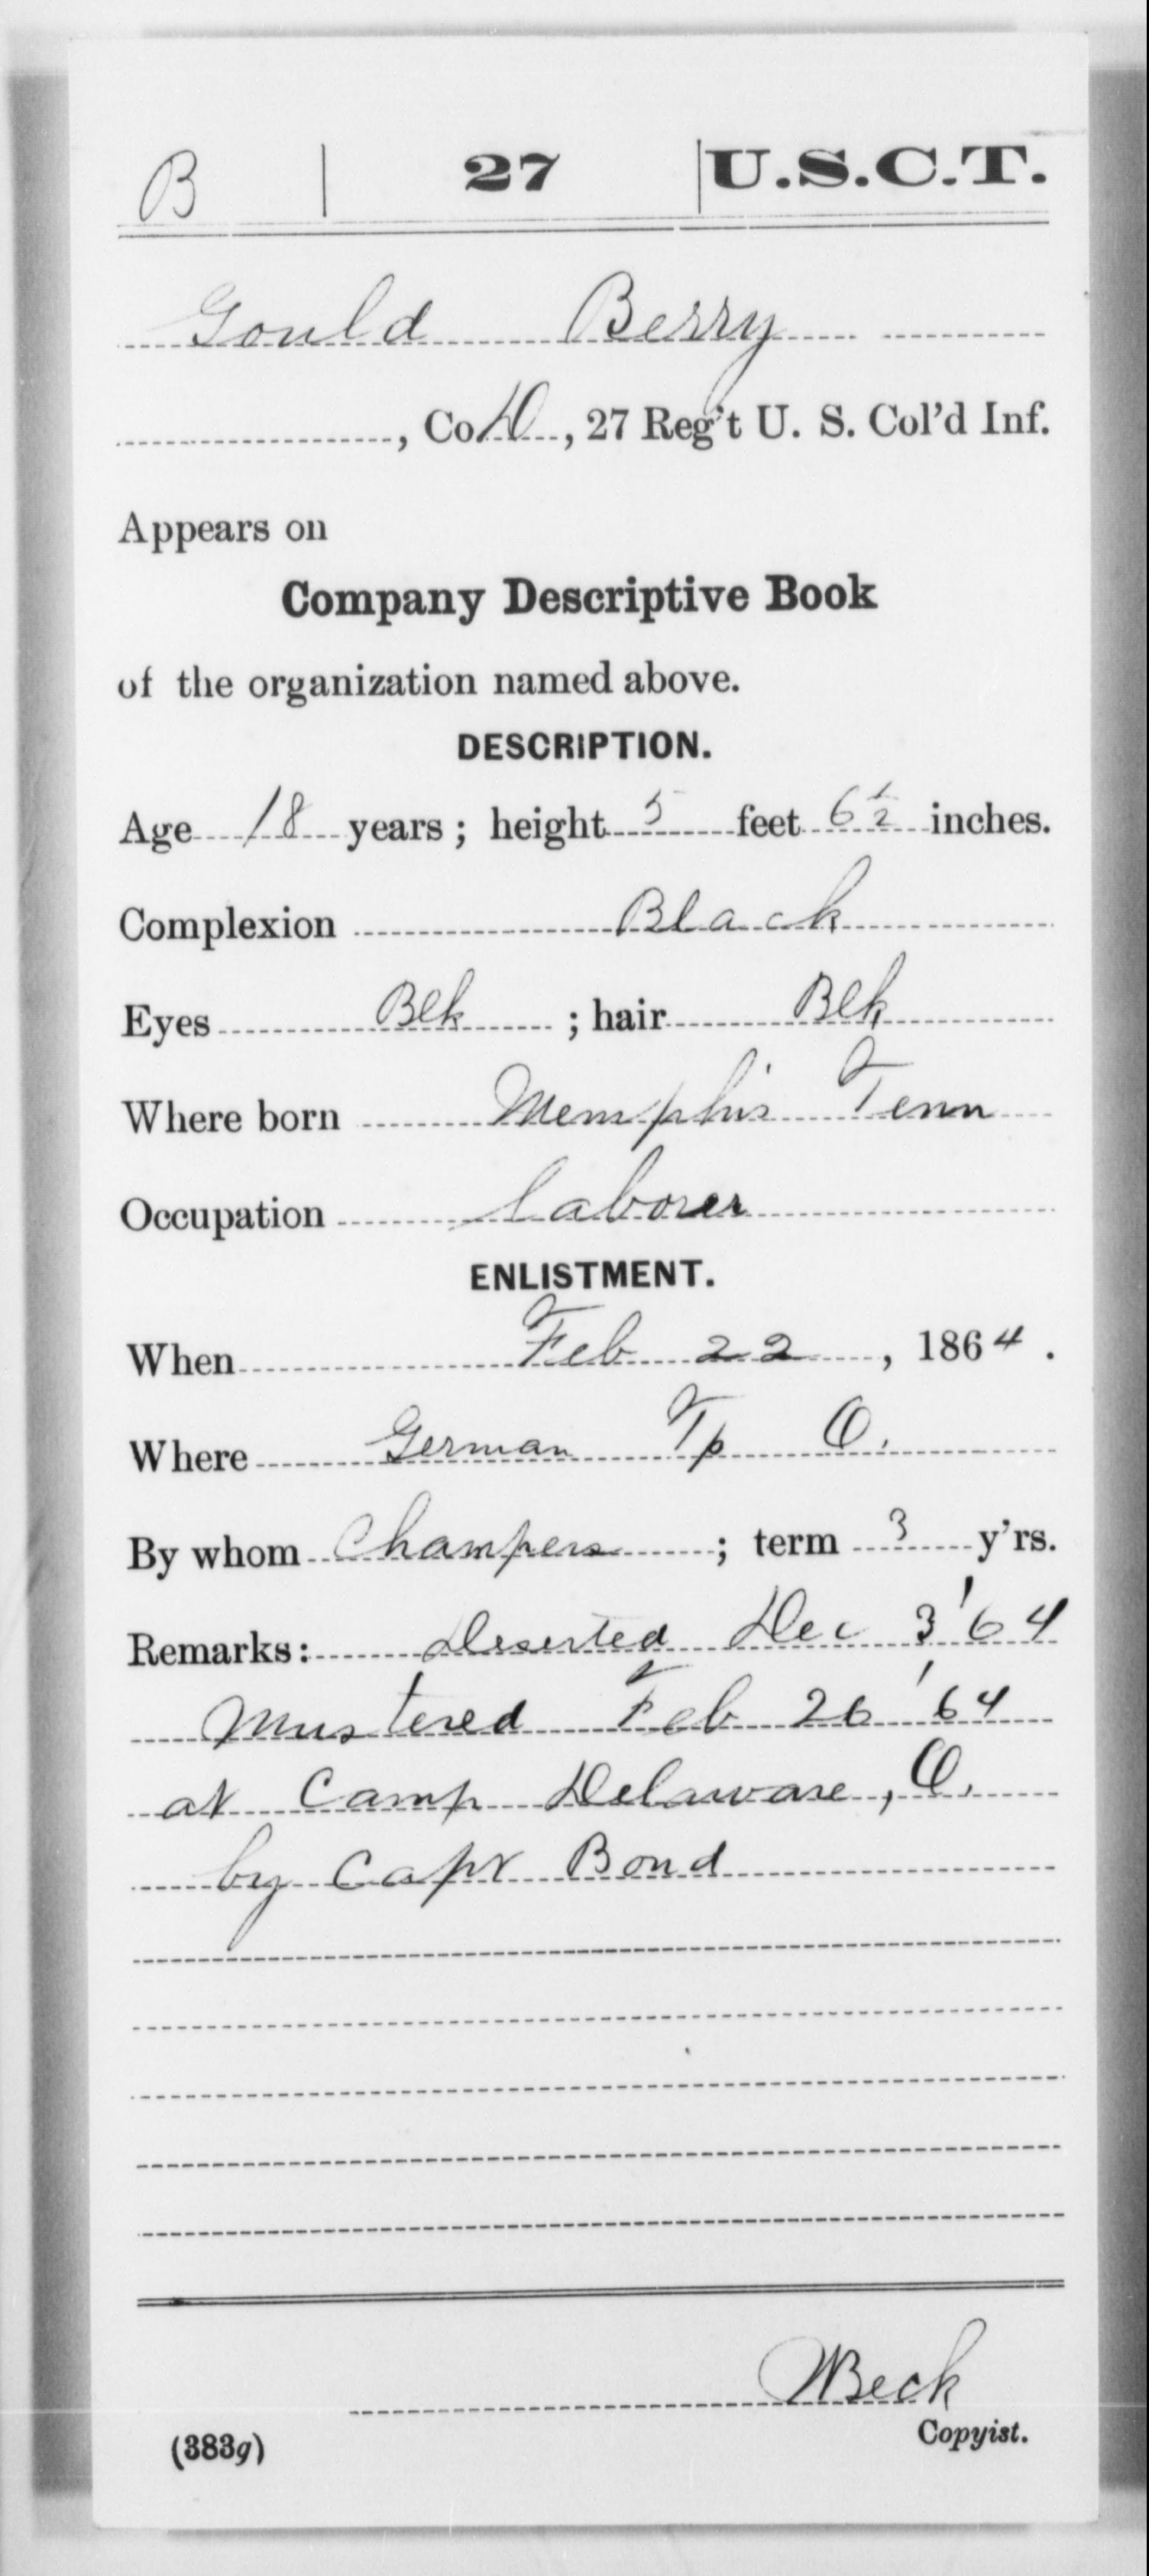 B | 27 | U.S.C.T.
Gould Berry
, Co. D, 27 Reg't U. S. Col'd Inf.
Appears on
Company Descriptive Book
of the organization named above.
DESCRIPTION.
Age 18 years; height 5 feet 6 1/2 inches.
Complexion Black
Eyes Blk ; hair Blk
Where born Memphis Tenn
Occupation laborer
ENLISTMENT.
When Feb 22, 1864.
Where German Tp O.
By whom Champers ; term 3 y'rs.
Remarks: Deserted Dec 3 '64
Mustered Feb 26 '64
at Camp Delaware, O.
by Capt Bond
WBeck
(383g) Copyist.